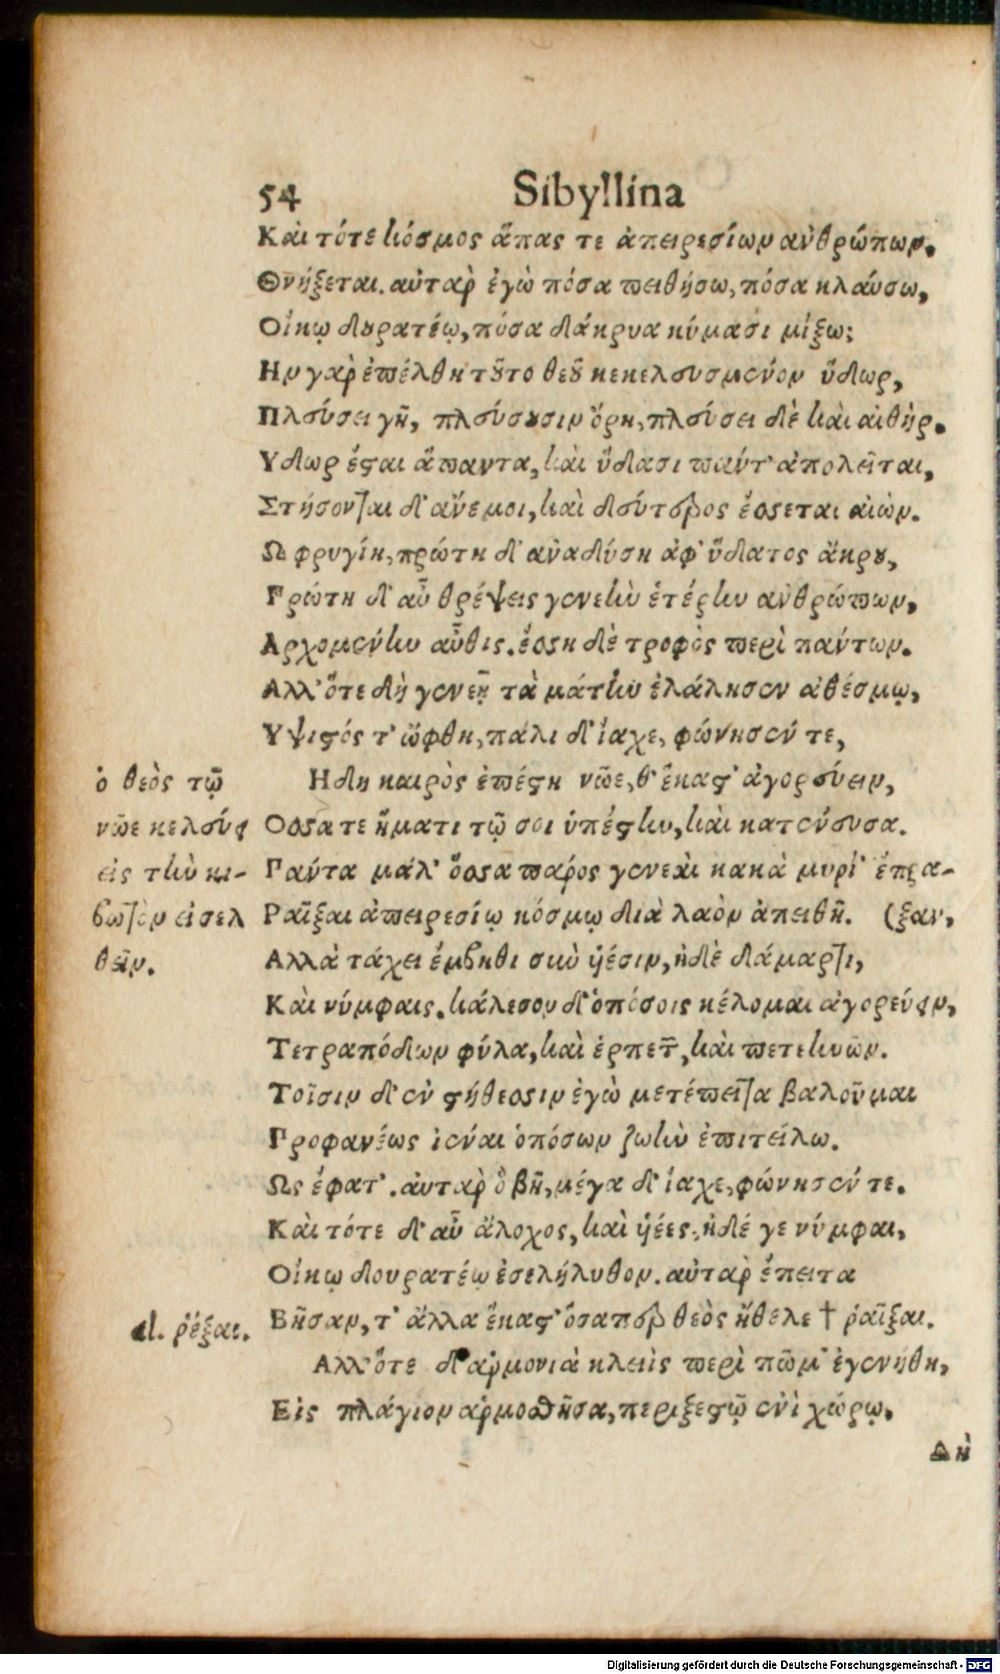 54 Sibyllina
Καὶ τότε κόσμος ἅπας τε ἀπειρεσίων ἀνθρώπων.
Θνήξεται. αὐτὰρ ἐγὼ πόσα πειθήσω, πόσα κλαύσω,
Οἴκῳ δουρατέῳ, πόσα δάκρυα κύμασι μίξω;
Ην γὰρ ἐπέλθη τοῦτο θεοῦ κεκελευσμένον ὕδωρ,
Πλεύσει γῆ, πλεύσουσιν ὄρη, πλεύσει δὲ καὶ αἰθὴρ.
Υδωρ ἔσται ἅπαντα, καὶ ὕδασι πάντ' ἀπολεῖται,
Στήσονται δ' ἄνεμοι, καὶ δεύτερος ἔσσεται αἰὼν.
Ω φρυγίη, πρώτη δ' ἀναδύση ἀφ' ὕδατος ἄκρου,
Πρώτη δ' αὖ θρέψεις γενεὴν ἑτέρην ἀνθρώπων,
Αρχομένην αὖθις. ἔσση δὲ τροφὸς περὶ πάντων.
Αλλ' ὅτε δὴ γενεῇ τὰ μάτην ἐλάλησεν ἀθέσμῳ,
Υψιστός τ' ὤφθη, πάλι δ' ἴαχε, φώνησέν τε,
Ηδη καιρὸς ἐπέστη νῶε, θ' ἕκαστ' ἀγορεύειν,
Οσσα τε ἤματι τῷ σοι ὑπέστην, καὶ κατένευσα.
Πάντα μάλ' ὅσσα πάρος γενεαὶ κακὰ μυρί' ἔπρα-
Ραῖξαι ἀπειρεσίῳ κόσμῳ διὰ λαὸν ἀπειθῆ. (ξαν,
Αλλὰ τάχει ἔμβηθι σὺν ἡέσιν, ἠδὲ δάμαρτι,
Καὶ νύμφαις. κάλεσον δ' ὁπόσοις κέλομαι ἀγορεύειν,
Τετραπόδων φύλα, καὶ ἑρπετὰ, καὶ πετεηνῶν.
Τοῖσιν δ' ἐν στήθεσσιν ἐγὼ μετέπειτα βαλοῦμαι
Προφανέως ἰέναι ὁπόσων ζωὴν ἐπιτείλω.
Ως ἔφατ'. αὐτὰρ ὃ βῆ, μέγα δ' ἴαχε, φώνησέν τε.
Καὶ τότε δ' αὖ ἄλοχος, καὶ ἡέες, ἠδέ γε νύμφαι,
Οἴκῳ δουρατέῳ ἐσελήλυθον. αὐτὰρ ἔπειτα
Βῆσαν, τ' ἄλλα ἕκαστ' ὅσαπερ θεὸς ἤθελε † ῥαῖξαι.
Αλλ' ὅτε δ' ἁρμονιὰ κλειὶς περὶ πῶμ' ἐγενήθη,
Εἰς πλάγιον ἁρμοσθῆσα, περιξεστῷ ἐνὶ χώρῳ.
Δὴ
ὁ θεὸς τῷ
νῶε κελεύει
εἰς τὴν κι-
βωτὸν εἰσελ
θεῖν.
al. ῥέξαι.
Digitalisierung gefördert durch die Deutsche Forschungsgemeinschaft - DFG